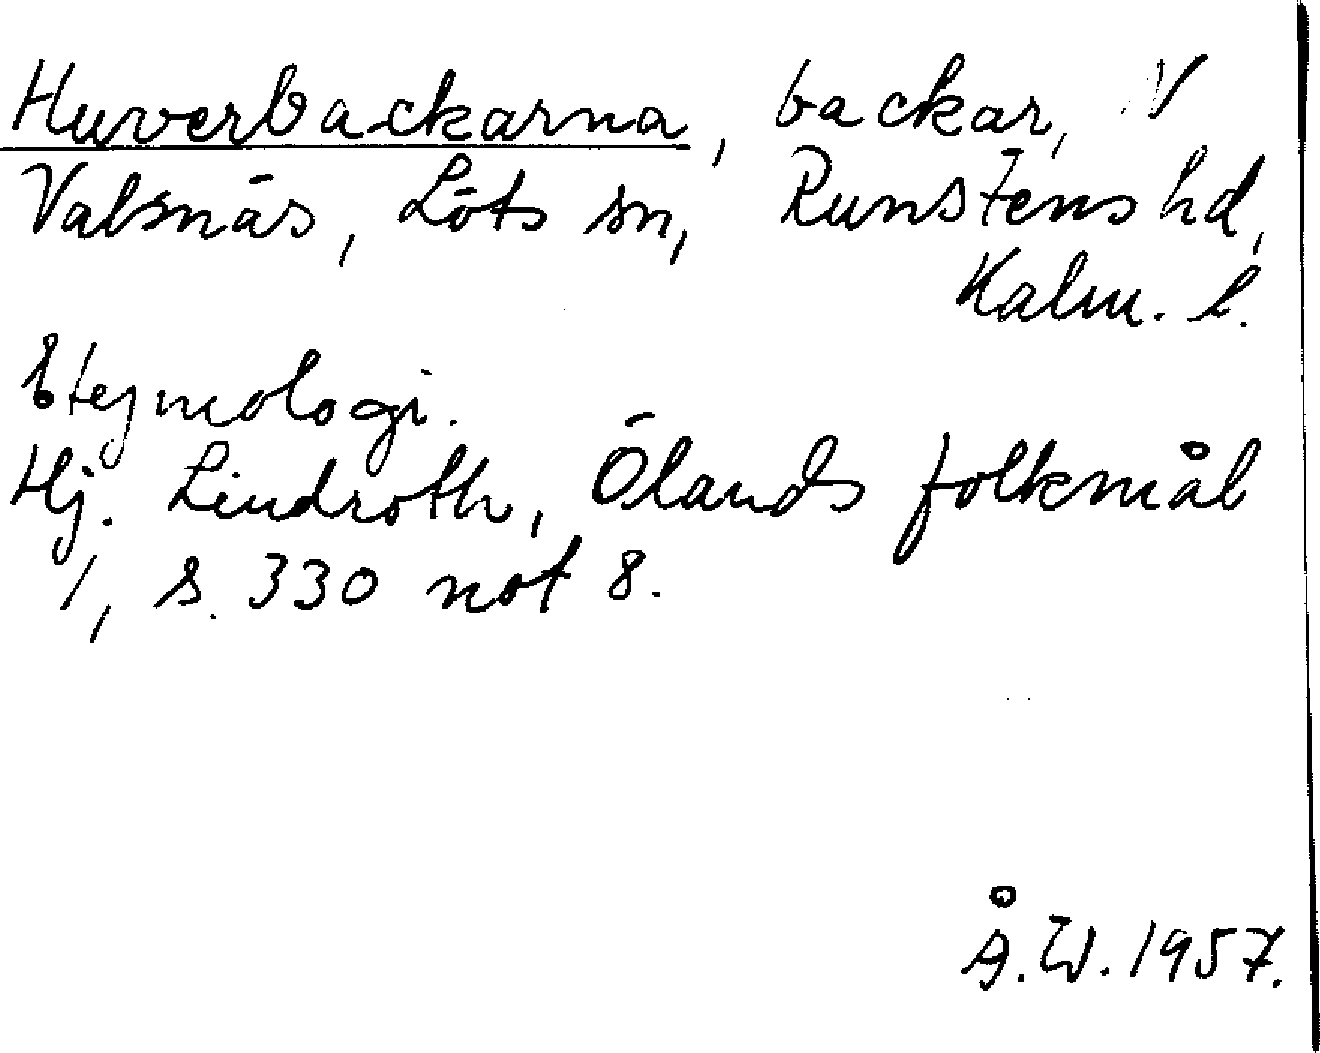 Huverbackarna, backar, V
Valsnäs, Löts sn, Runstens hd,
Kalm. l.
Etymologi.
Hj. Lindroth, Ölands folkmål
1, s. 330 not 8.
Å.W. 1957.